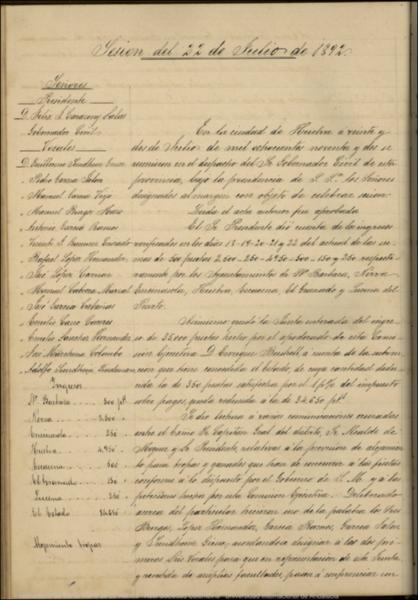 Sesion del 22 de Julio de 1892.
Señores
Presidente
Gobernador Civil
Vocales
Pedro Garcia Jalon
Manuel Garcia
Manuel Burgos
Antonio Garcia Ramos
Vicente
Rafael Lopez Hernandez
José Lopez
Manuel
José Garcia Cabañas
Aurelio Cano
Aurelio Sanchez Hernandez
José Marchena Colombo
Adolfo Sundheim
Ingresos
Sta Barbara ... 500 pts
Nerva ... 2.500
Encinasola ... 250
Huelva ... 4.950
Aracena ... 500
El Granado ... 150
Lucena ... 250
El Estado
Alojamiento tropas
En la ciudad de Huelva a veinte y
dos de Julio de mil ochocientos noventa y dos se
reunieron en el despacho del Sr Gobernador Civil de esta
provincia, bajo la presidencia de S. Sª los Señores
designados al margen con objeto de celebrar sesion.
Leida el acta anterior fue aprobada
El Sr Presidente dio cuenta de los ingresos
verificados en los dias 18-19-20-21 y 22 del actual de las su-
mas de 500 pesetas 2.500-250-4950-500-150 y 250 respecti-
vamente por los Ayuntamientos de Sta Barbara, Nerva
Encinasola, Huelva, Aracena, El Granado y Lucena del
Puerto.
Asimismo quedó la Junta enterada del ingre-
so de 35000 pesetas hecho por el apoderado de esta Comi-
sion Ejecutiva D. Enrique a cuenta de la subven-
cion que tiene concedida el Estado, de cuya cantidad dedu-
cida la de 350 pesetas satisfecha por el 1 p% del impuesto
sobre pagos, queda reducida a la de 34.650 pts
Se dio lectura a varias comunicaciones cruzadas
entre el Excmo Sr Capitan Gral del distrito, Sr Alcalde de
Moguer y la Presidencia relativas a la provision de alojamien-
to para tropas y ganados que han de concurrir a las fiestas
conforme a lo dispuesto por el Gobierno de S. M. y a las
peticiones hechas por esta Comision Ejecutiva. Deliberando
acerca del particular hicieron uso de la palabra los Sres
Burgos, Lopez Hernandez, Garcia Ramos, Garcia Jalon
y Sundheim acordandose designar a los dos pri-
meros Sres Vocales para que en representacion de esta Junta
y revestidos de amplias facultades pasen a conferenciar con